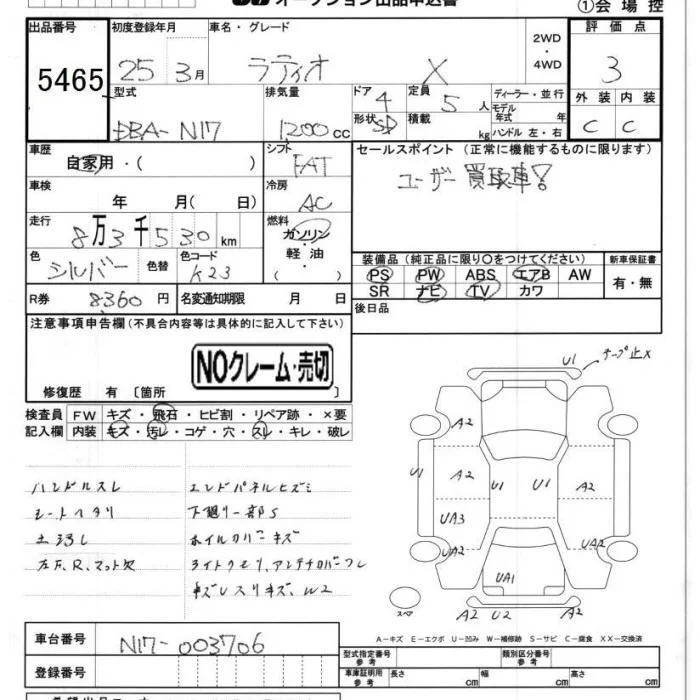 オークション出品申込書
①会場控
出品番号 初度登録年月 車名・グレード 2WD・4WD 評価点
5465 25年3月 ラティオ X 3
型式 排気量 ドア 4 定員 5人 ディーラー・並行 外装 内装
DBA-N17 1200cc 形状 SD 積載 kg モデル年式 年 ハンドル 左・右 C C
車歴 自家用・( ) シフト FAT セールスポイント (正常に機能するものに限ります)
ユーザー買取車!
車検 年 月( 日) 冷房 AC
走行 8万3千530km 燃料 ガソリン・軽油・( )
色 シルバー 色替 色コード K23
装備品 (純正品に限り○をつけてください) 新車保証書
PS PW ABS エアB AW 有・無
SR ナビ TV カワ
R券 8360円 名変通知期限 月 日 後日品
注意事項申告欄 (不具合内容等は具体的に記入して下さい)
NOクレーム・売切
修復歴 有 〔箇所 〕
検査員記入欄 FW キズ・飛石・ヒビ割・リペア跡・×要
内装 キズ・汚レ・コゲ・穴・スレ・キレ・破レ
ハンドルスレ エンドパネルヒズミ
シートヘタリ 下廻り一部S
ホイルカバーキズ
U1 テープ止X
A2
U1 A2 U1 U1 A2
UA3
UA2 UA2
UA1
スペア A2 U2 A2
A−キズ E−エクボ U−凹み W−補修跡 S−サビ C−腐食 XX−交換済
車台番号 N17-003706
登録番号
型式指定番号 参考 類別区分番号 参考
車庫証明用 参考 長さ cm 幅 cm 高さ cm